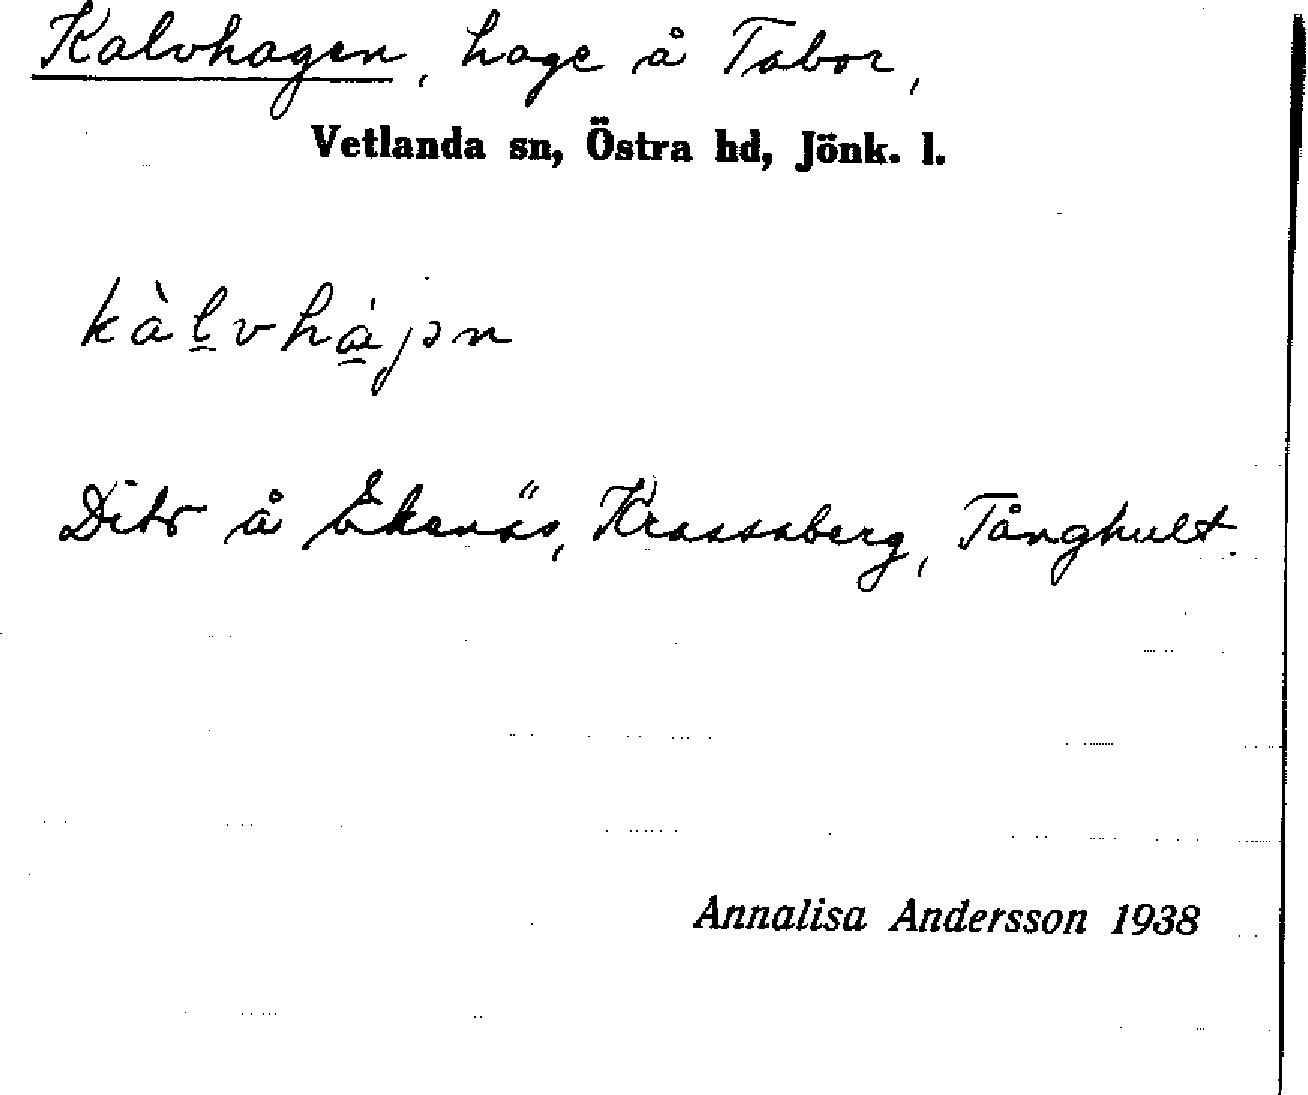 Kalvhagen, hage å Tabor,
Vetlanda sn, Östra hd, Jönk. l.
kàl̠vhá̠jən
Dito å Ekenäs, Krassaberg, Tånghult.
Annalisa Andersson 1938